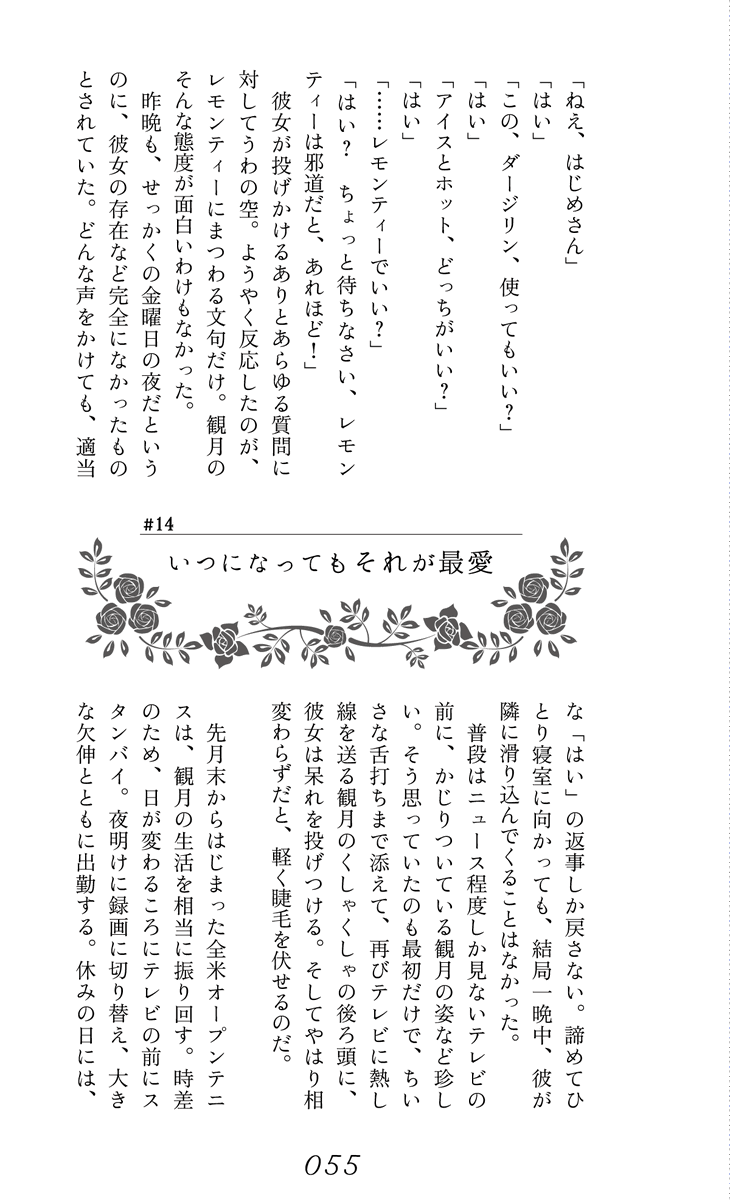 #14
いつになってもそれが最愛
「ねえ、はじめさん」
「はい」
「この、ダージリン、使ってもいい？」
「はい」
「アイスとホット、どっちがいい？」
「はい」
「……レモンティーでいい？」
「はい？　ちょっと待ちなさい、レモン
ティーは邪道だと、あれほど！」
　彼女が投げかけるありとあらゆる質問に
対してうわの空。ようやく反応したのが、
レモンティーにまつわる文句だけ。観月の
そんな態度が面白いわけもなかった。
　昨晩も、せっかくの金曜日の夜だという
のに、彼女の存在など完全になかったもの
とされていた。どんな声をかけても、適当
な「はい」の返事しか戻さない。諦めてひ
とり寝室に向かっても、結局一晩中、彼が
隣に滑り込んでくることはなかった。
　普段はニュース程度しか見ないテレビの
前に、かじりついている観月の姿など珍し
い。そう思っていたのも最初だけで、ちい
さな舌打ちまで添えて、再びテレビに熱し
線を送る観月のくしゃくしゃの後ろ頭に、
彼女は呆れを投げつける。そしてやはり相
変わらずだと、軽く睫毛を伏せるのだ。
　先月末からはじまった全米オープンテニ
スは、観月の生活を相当に振り回す。時差
のため、日が変わるころにテレビの前にス
タンバイ。夜明けに録画に切り替え、大き
な欠伸とともに出勤する。休みの日には、
055